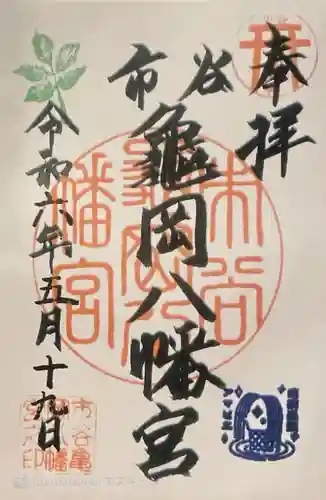 奉拝
市谷
亀岡八幡宮
令和六年五月十九日
市谷
八幡宮
市谷亀
岡八幡
宮之印